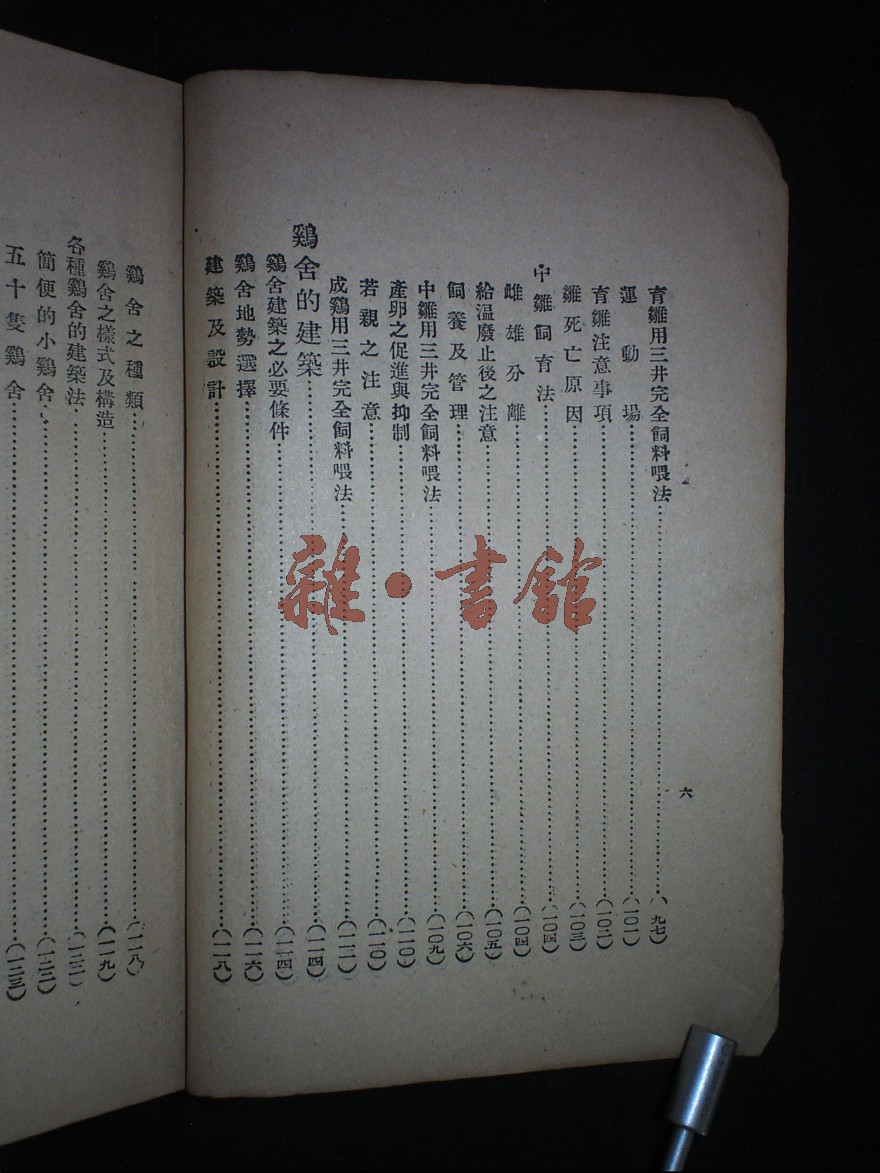 六
育雛用三井完全飼料喂法……（九七）
運動場……（一〇一）
育雛注意事項……（一〇二）
雛死亡原因……（一〇三）
中雛飼育法……（一〇四）
雌雄分離……（一〇四）
給温廢止後之注意……（一〇五）
飼養及管理……（一〇六）
中雛用三井完全飼料喂法……（一〇九）
產卵之促進與抑制……（一一〇）
若親之注意……（一一〇）
成鷄用三井完全飼料喂法……（一一二）
鷄舍的建築……（一一四）
鷄舍建築之必要條件……（一一四）
鷄舍地勢選擇……（一一六）
建築及設計……（一一八）
鷄舍之種類……（一一八）
鷄舍之樣式及構造……（一一九）
各種鷄舍的建築法……（一二二）
簡便的小鷄舍……（一二二）
五十隻鷄舍……（一二三）
雜·書館